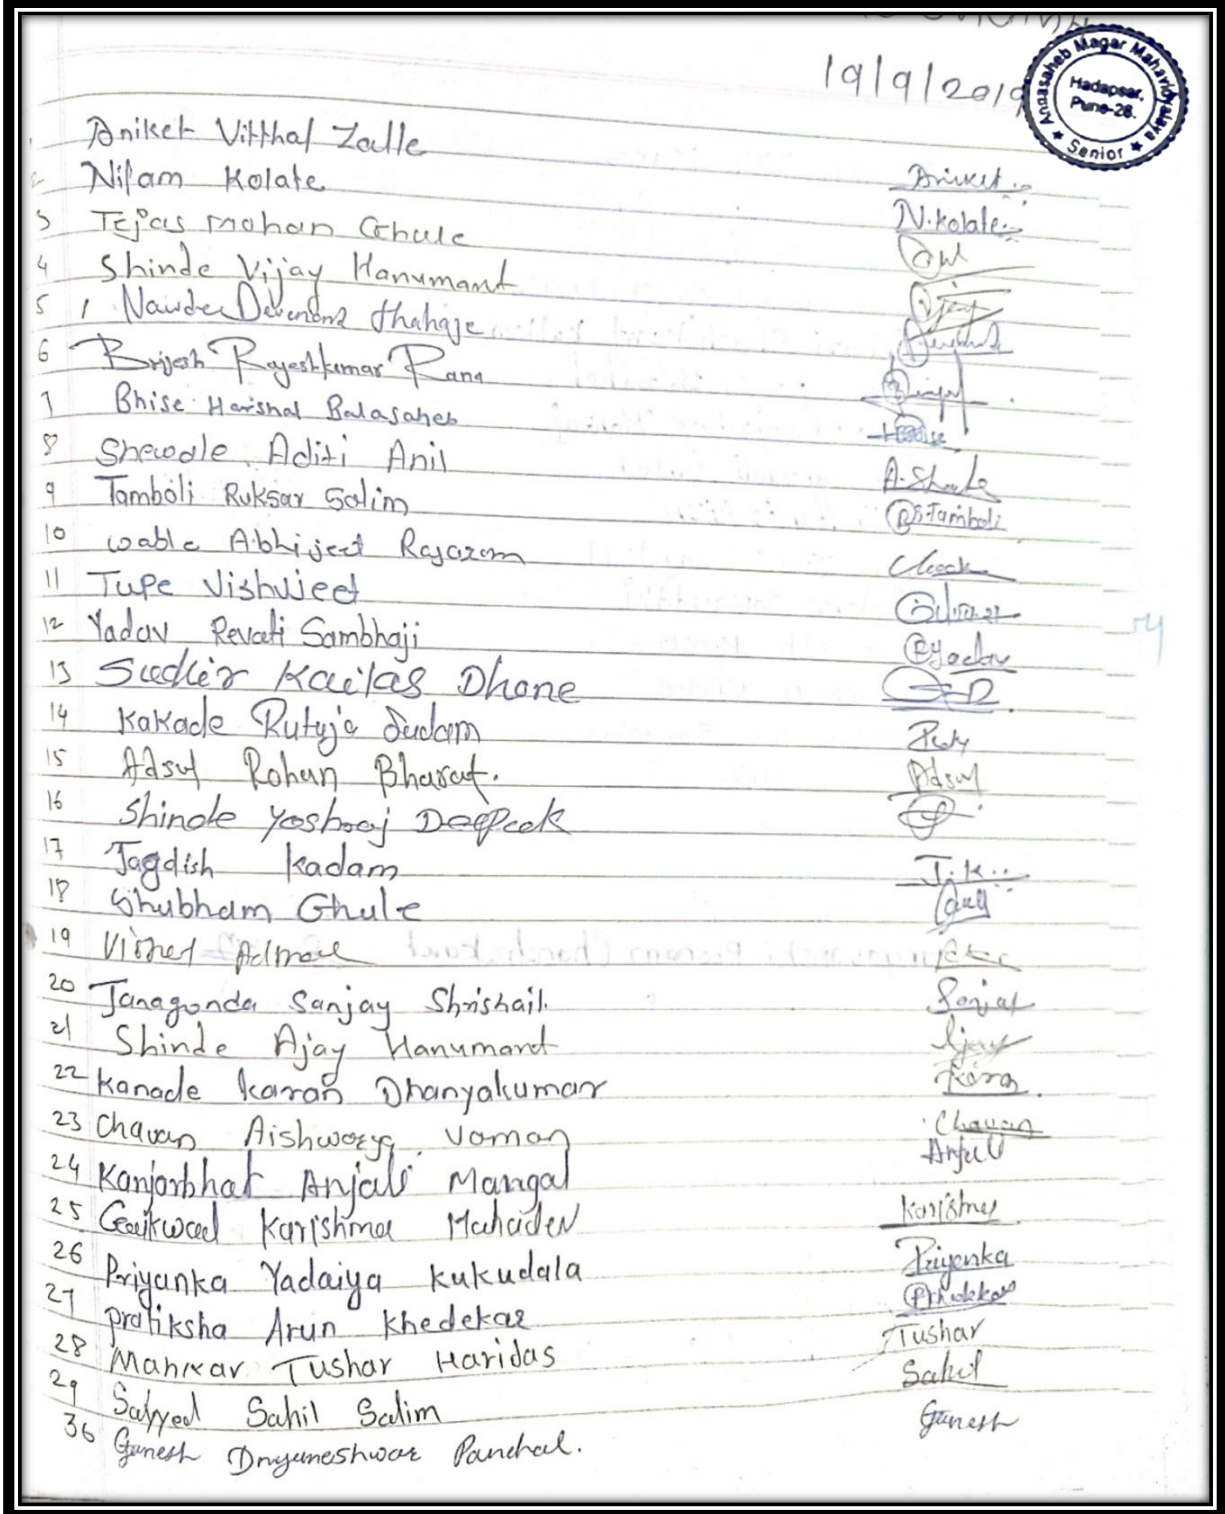 19/9/2019
Annasaheb Magar Mahavidyalaya
Hadapsar,
Pune-28.
★ Senior ★
Aniket Vitthal Zalle Aniket
Nilam Kolate N.kolate
3 Tejas Mohan Ghule
4 Shinde Vijay Hanumant Vijay
5 Devendra
6 Brijesh Rajeshkumar Rana
7 Bhise Harshal Balasaheb
8 Shewale Aditi Anil
9 Tamboli Ruksar Salim RS.Tamboli
10 wable Abhijeet Rajaram
11 Tupe Vishvjeet
12 Yadav Revati Sambhaji RYadav
13 Sudhir Kailas Dhone
14 Kakade Rutuja Sudam
15 Adsul Rohan Bharat. Adsul
16 Shinde Yashraj Deepak
17 Jagdish Kadam J.K..
18 Shubham Ghule
19
20 Janagonda Sanjay Shrishail. Sanjay
21 Shinde Ajay Hanumant Ajay
22 Kanade Karan Dhanyakumar Karan
23 Chavan Aishwarya Vaman Chavan
24 Kanjarbhat Anjali Mangal Anjali
25 Gaikwad Karishma Mahadev Karishma
26 Priyanka Yadaiya Kukudala Priyanka
27 Pratiksha Arun Khedekar PKhedekar
28 Mankar Tushar Haridas Tushar
29 Sayyed Sahil Salim Sahil
30 Ganesh Dnyaneshwar Panchal. Ganesh